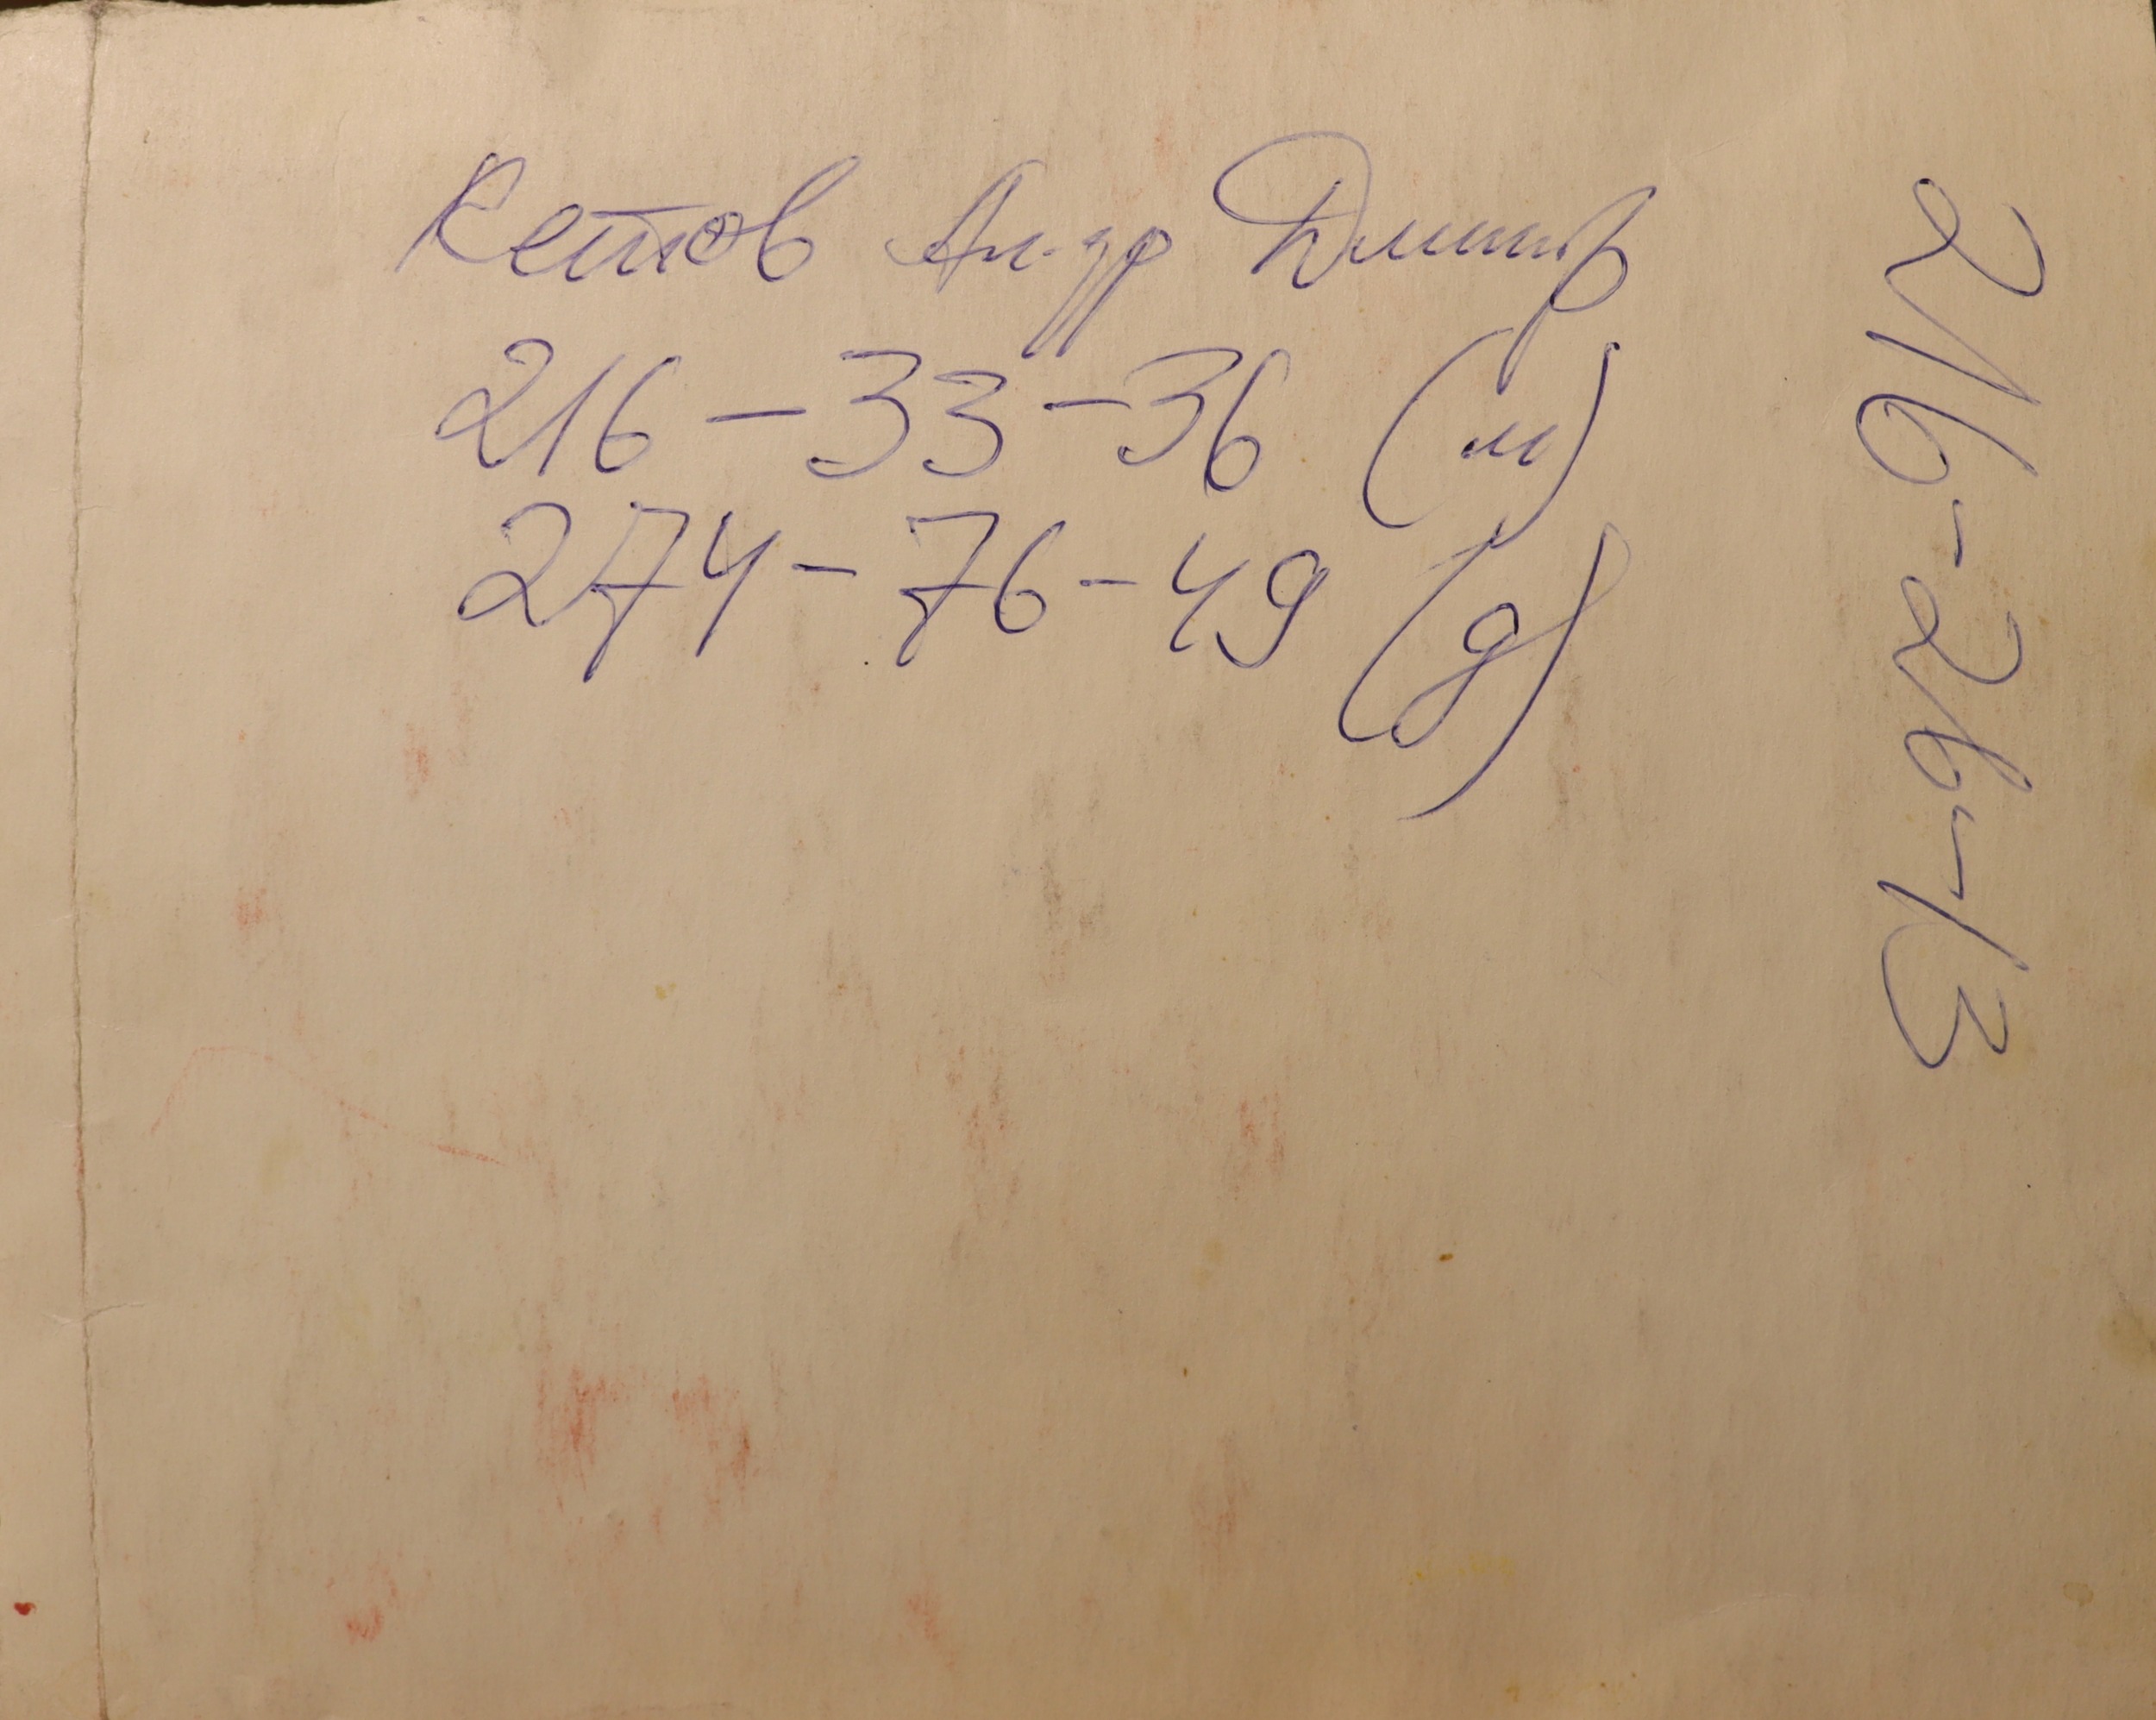 Кетов Андр Дмитр
216-33-36 (м)
274-76-49 (д)
216-26-13